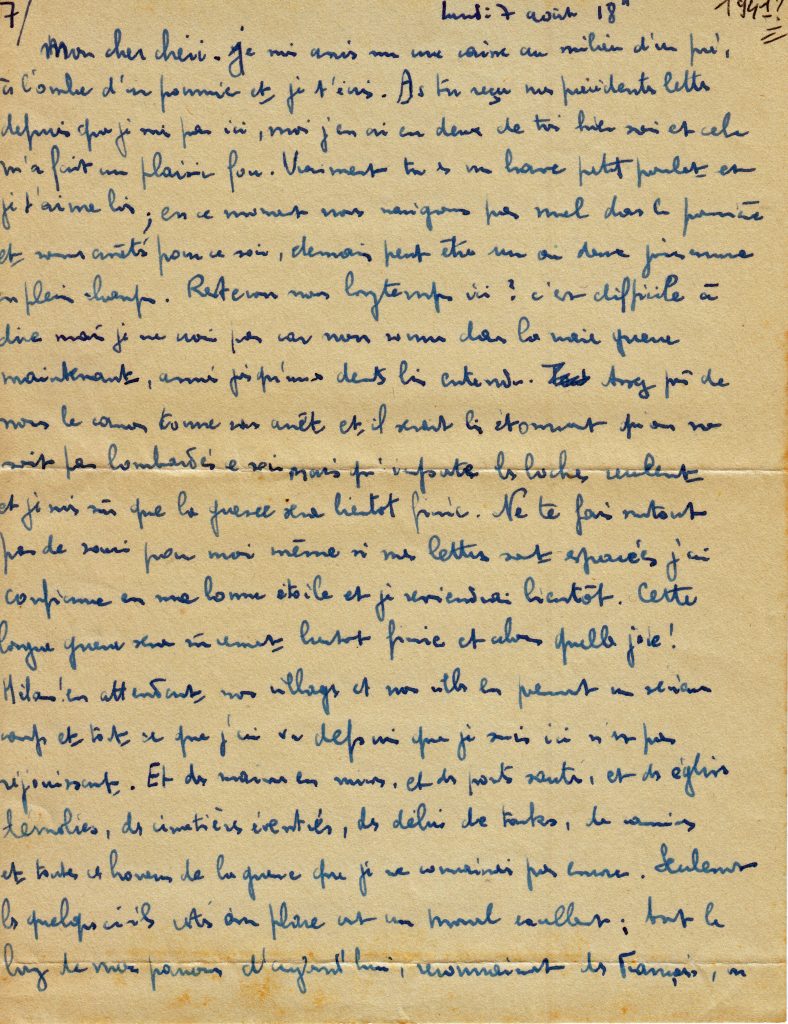 7/ Lundi 7 août 18h 1941?
Mon cher chéri. Je me suis mis une caisse au milieu d'un pré,
à l'ombre d'un pommier et je t'écris. As tu reçu mes précédentes lettres
depuis que je suis par ici, moi j'en ai eu deux de toi hier soir et cela
m'a fait un plaisir fou. Vraiment tu es un brave petit poulet et
je t'aime bis; en ce moment nous navigons pas mal dans la poussière
et sommes arrêtés pour ce soir, demain peut être un ou deux jours encore
en plein champs. Resterons nous longtemps ici? c'est difficile à
dire mais je ne crois pas car nous sommes dans la vraie guerre
maintenant, armés jusqu'aux dents bis entendu. Assez près de
nous le canon tonne sans arrêt et il serait bis étonnant qu'on ne
soit pas bombardés ce soir mais qu'importe les boches reculent
et je suis sûr que la guerre sera bientôt finie. Ne te fais surtout
pas de souci pour moi même si mes lettres sont espacées j'ai
confiance en ma bonne étoile et je reviendrai bientôt. Cette
longue guerre sera sûrement bientot finie et alors quelle joie!
Hélas! en attendant, nos villages et nos villes en prennent un sérieux
coup et tout ce que j'ai vu depuis que je suis ici n'est pas
réjouissant. Et des maisons en ruines, et des ponts sautés, et des églises
démolies, des cimetières éventrés, des débris de tanks, de camions
et toutes ces horreurs de la guerre que je ne connaissais pas encore. Seulement
les quelques civils restés sur place ont un moral excellent; tout le
long de notre parcours d'aujourd'hui, reconnaissant des Français, on